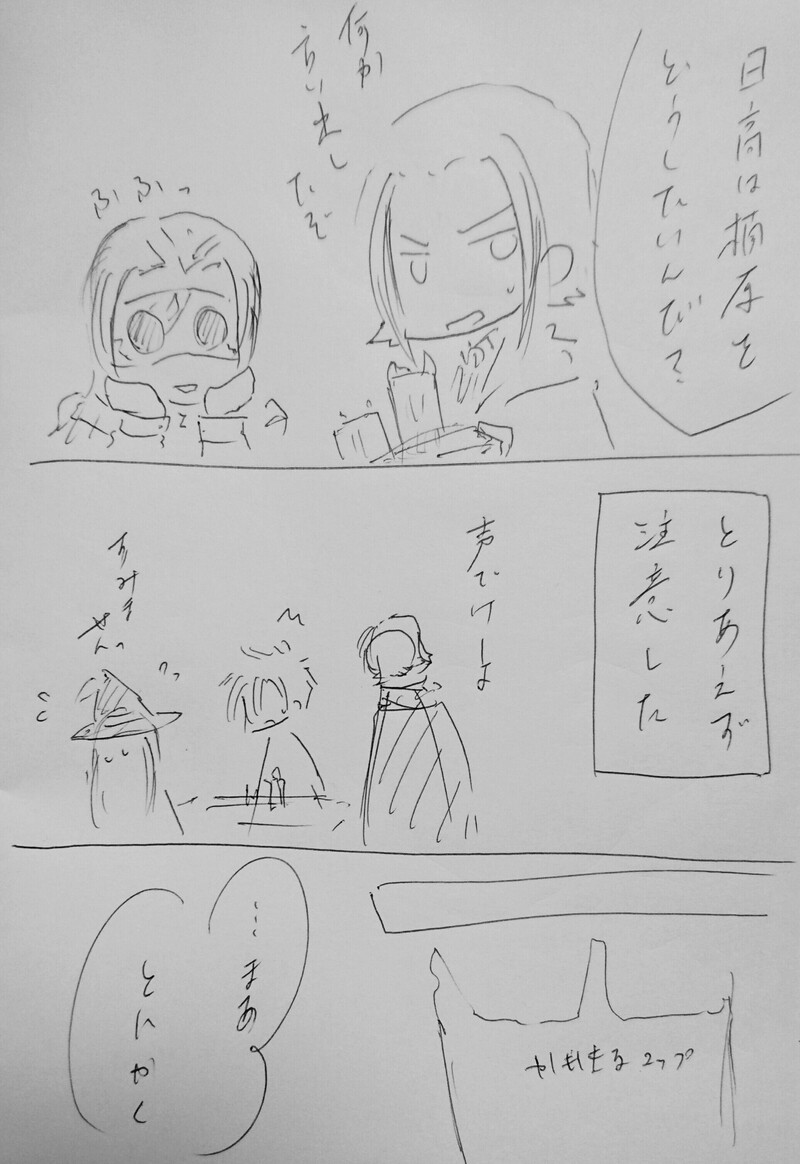 日高は楠原を
どうしたいんだ?
何か
言い出し
たぞ
ふふっ
とりあえず
注意した
声でけーよ
すみま
せんっ
…まあ
とにかく